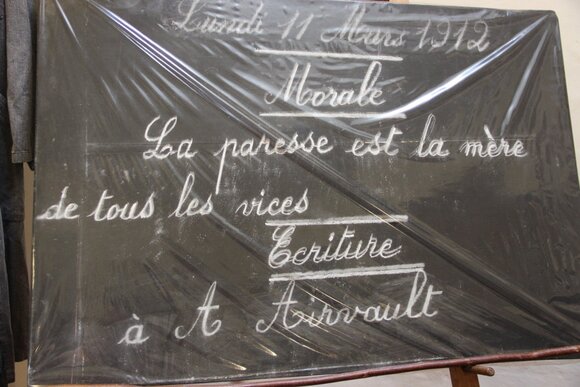 Lundi 11 Mars 1912
Morale
La paresse est la mère
de tous les vices
Ecriture
à A Airvault